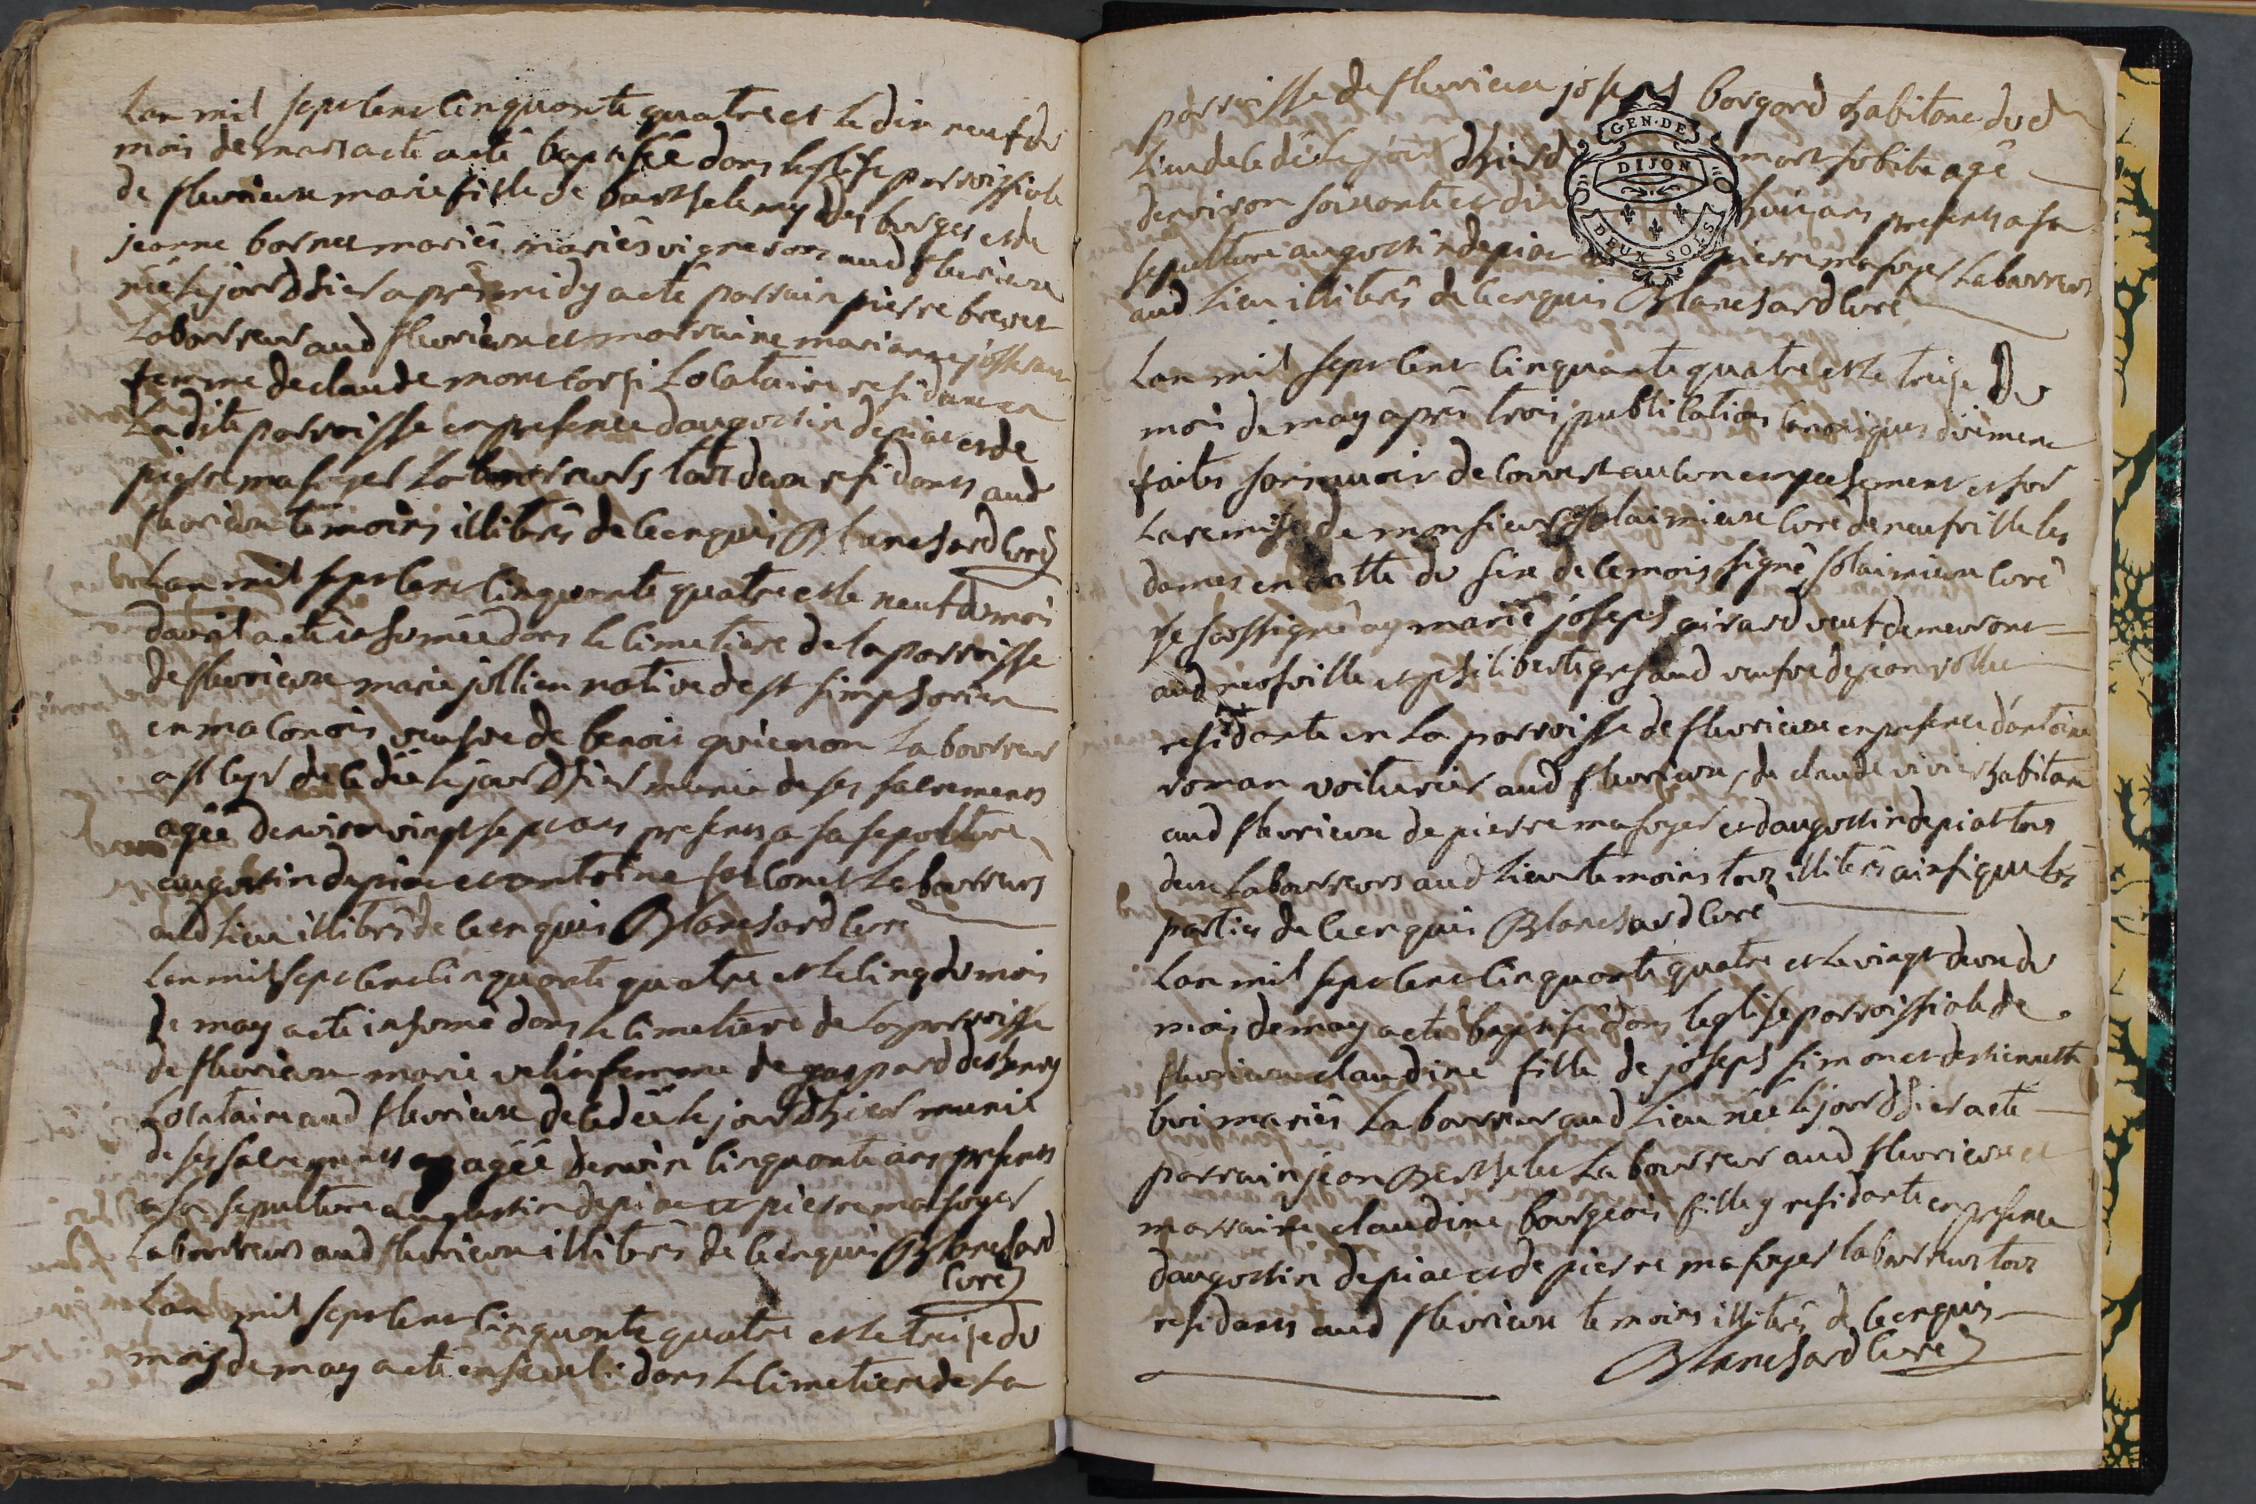 Lan mil sept cent cinquante quatre et le dix neuf du
mois de mars acté acté baptisée dans leglise parroissiale
de fleurieux marie fille de barthelemy des borges et de
jeanne bornet mariés mariés vigneron aud fleurieux
née le jour dhier apres midy a eté parrain pierre brevet
laboureur aud fleurieux et marraine marianne josserand
femme de claude mont corsi locataire residante en
ladite parroisse en presence daugustin depiat et de
pierre masoyer laboureurs tout deux residants aud
fleurieux temoins illiterés de ce enquis Blanchard Curé
Lan mil sept cent cinquante quatre et le neuf du mois
davril a eté inhumée dans le cimetiere de la parroisse
de fleurieux marie jullien native de st simphorien
en maconois veufve de benois laboureur
a st Cyr decedée le jour dhier munie de ses sacrements
agée denviron vingt sept ans presents a sa sepulture
augustin depiat et antoine falconet laboureurs
aud lieu illiterés de ce enquis Blanchard Curé
Lan mil sept cent cinquante quatre et le cinq du mois
de may a eté inhumé dans le cimetiere de la parroisse
de fleurieux marie velin femme de gaspard deshenry
locataire aud fleurieux decedée le jour dhier munie
de ses sacrements agée denvin cinquante ans presents
a sa sepulture augustin depiat et pierre masoyer
laboureurs aud fleurieux illiterés de ce enquis Blanchard
Curé
Lan mil sept cent cinquante quatre et le treize du
mois de may a eté enseveli dans le cimetiere de la
parroisse de fleurieux joseph borgord habitant dud
lieu decedé le jour dhier de mort subite agé
denviron soixante et dix huit ans presents a sa
sepulture augustin depiat et pierre masoyer laboureurs
aud lieu illiterés de ce enquis Blanchard Curé
GEN. DE
DIJON
DEUX SOLS
Lan mil sept cent cinquante quatre et le treize du
mois de may après trois publications canoniques düement
faites sans avoir decouvert aucun empechement et sur
la remise de monsieur solaimieux Curé de neufville les
dames en datte du six de ce mois signé solaimieux Curé
je soussigné ay marié joseph girard veuf demeurant
aud neufville et philiberte greffaud veufve de jean vollet
residante en la parroisse de fleurieux en presence dantoine
roman voiturier aud fleurieux, de claude vivier habitant
aud fleurieux de pierre masoyer et daugustin depiat tous
deux laboureurs aud lieu temoins tous illiterés ainsi que les
parties de ce enquis Blanchard Curé
Lan mil sept cent cinquante quatre et le vingt deux du
mois de may a eté baptisé dans leglise parroissiale de
fleurieux claudine fille de joseph simon et destiennette
boi mariés laboureur aud lieu née le jour dhier a eté
parrain jean Berthelet laboureur aud fleurieux et
marraine claudine bourgeois fille y residante en presence
daugustin depiat et de pierre masoyer laboureurs tous
residants aud fleurieux temoins illiterés de ce enquis
Blanchard Curé